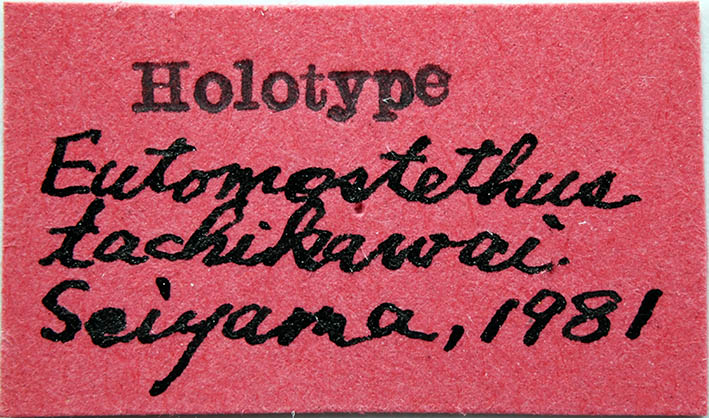 Holotype
Eutomostethus
tachikawai.
Seiyama, 1981